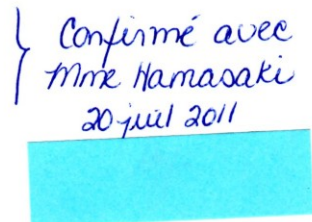 Confirmé avec
Mme Hamasaki
20 juil 2011